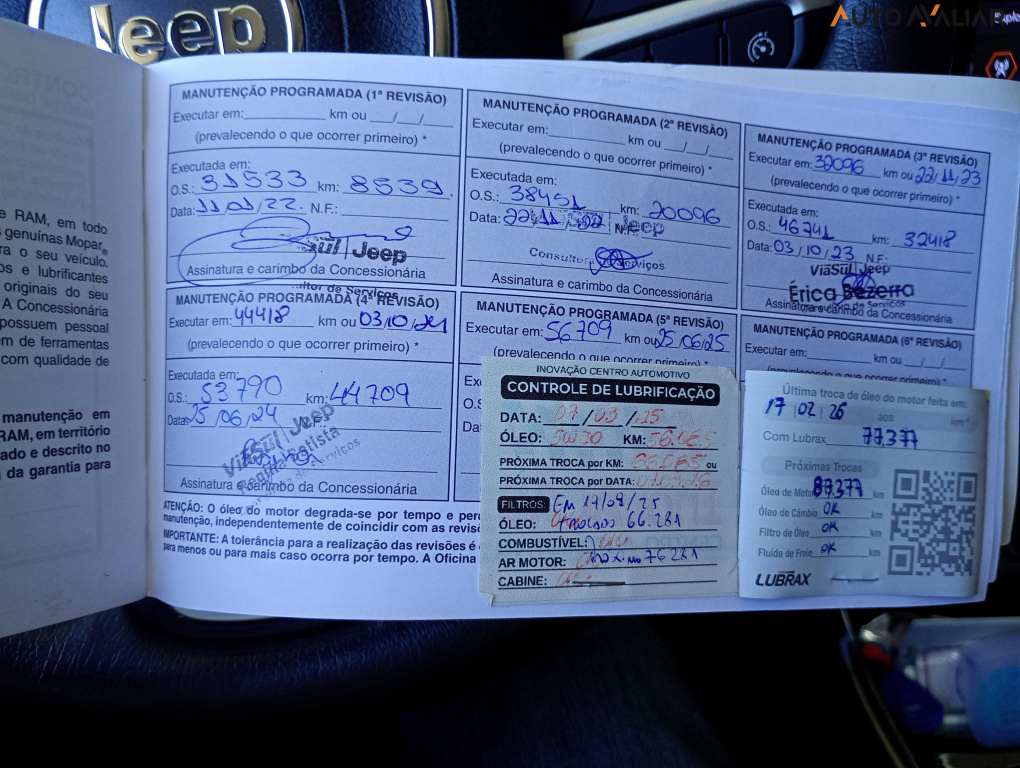 Jeep
AUTOAVALIAR
MANUTENÇÃO PROGRAMADA (1ª REVISÃO)
Executar em: km ou __/__/__
(prevalecendo o que ocorrer primeiro) *
Executada em:
O.S.: 31533 km: 8539.
Data: 11/01/22. N.F.:
Jeep
Assinatura e carimbo da Concessionária
MANUTENÇÃO PROGRAMADA (2ª REVISÃO)
Executar em: km ou __/__/__
(prevalecendo o que ocorrer primeiro) *
Executada em:
O.S.: 38451 km: 20096
Data: 22/11/22 Jeep
Consultor Serviços
Assinatura e carimbo da Concessionária
MANUTENÇÃO PROGRAMADA (3ª REVISÃO)
Executar em: 32096 km ou 22/11/23
(prevalecendo o que ocorrer primeiro) *
Executada em:
O.S.: 46741 km: 32418
Data: 03/10/23 N.F.
ViaSul Jeep
Érica Bezerra
Assinatura e carimbo da Concessionária
MANUTENÇÃO PROGRAMADA (4ª REVISÃO)
Executar em: 44418 km ou 03/10/24
(prevalecendo o que ocorrer primeiro) *
Executada em:
O.S.: 53790 km: 44709
Data: 25/06/24
ViaSul Jeep
Assinatura e carimbo da Concessionária
MANUTENÇÃO PROGRAMADA (5ª REVISÃO)
Executar em: 56709 km ou 25/06/25
(prevalecendo o que ocorrer primeiro) *
MANUTENÇÃO PROGRAMADA (6ª REVISÃO)
Executar em: km ou __/__/__
INOVAÇÃO CENTRO AUTOMOTIVO
CONTROLE DE LUBRIFICAÇÃO
DATA: 07/03/25
ÓLEO: 5W30 KM:
PRÓXIMA TROCA por KM: ou
PRÓXIMA TROCA por DATA:
FILTROS: Em 17/09/25
ÓLEO: 66.281
COMBUSTÍVEL:
AR MOTOR: 76281
CABINE:
Última troca de óleo do motor feita em:
17/02/26 aos km
Com Lubrax 77.377
Próximas Trocas
Óleo de Motor 87.377 km
Óleo de Câmbio OK km
Filtro de Óleo OK km
Fluído de Freio OK km
LUBRAX
ATENÇÃO: O óleo do motor degrada-se por tempo e
manutenção, independentemente de coincidir com as
IMPORTANTE: A tolerância para a realização das revisões é
para menos ou para mais caso ocorra por tempo. A Oficina
e RAM, em todo
genuínas Mopar®
ra o seu veículo.
os e lubrificantes
originais do seu
A Concessionária
possuem pessoal
em de ferramentas
com qualidade de
manutenção em
RAM, em território
ado e descrito no
da garantia para